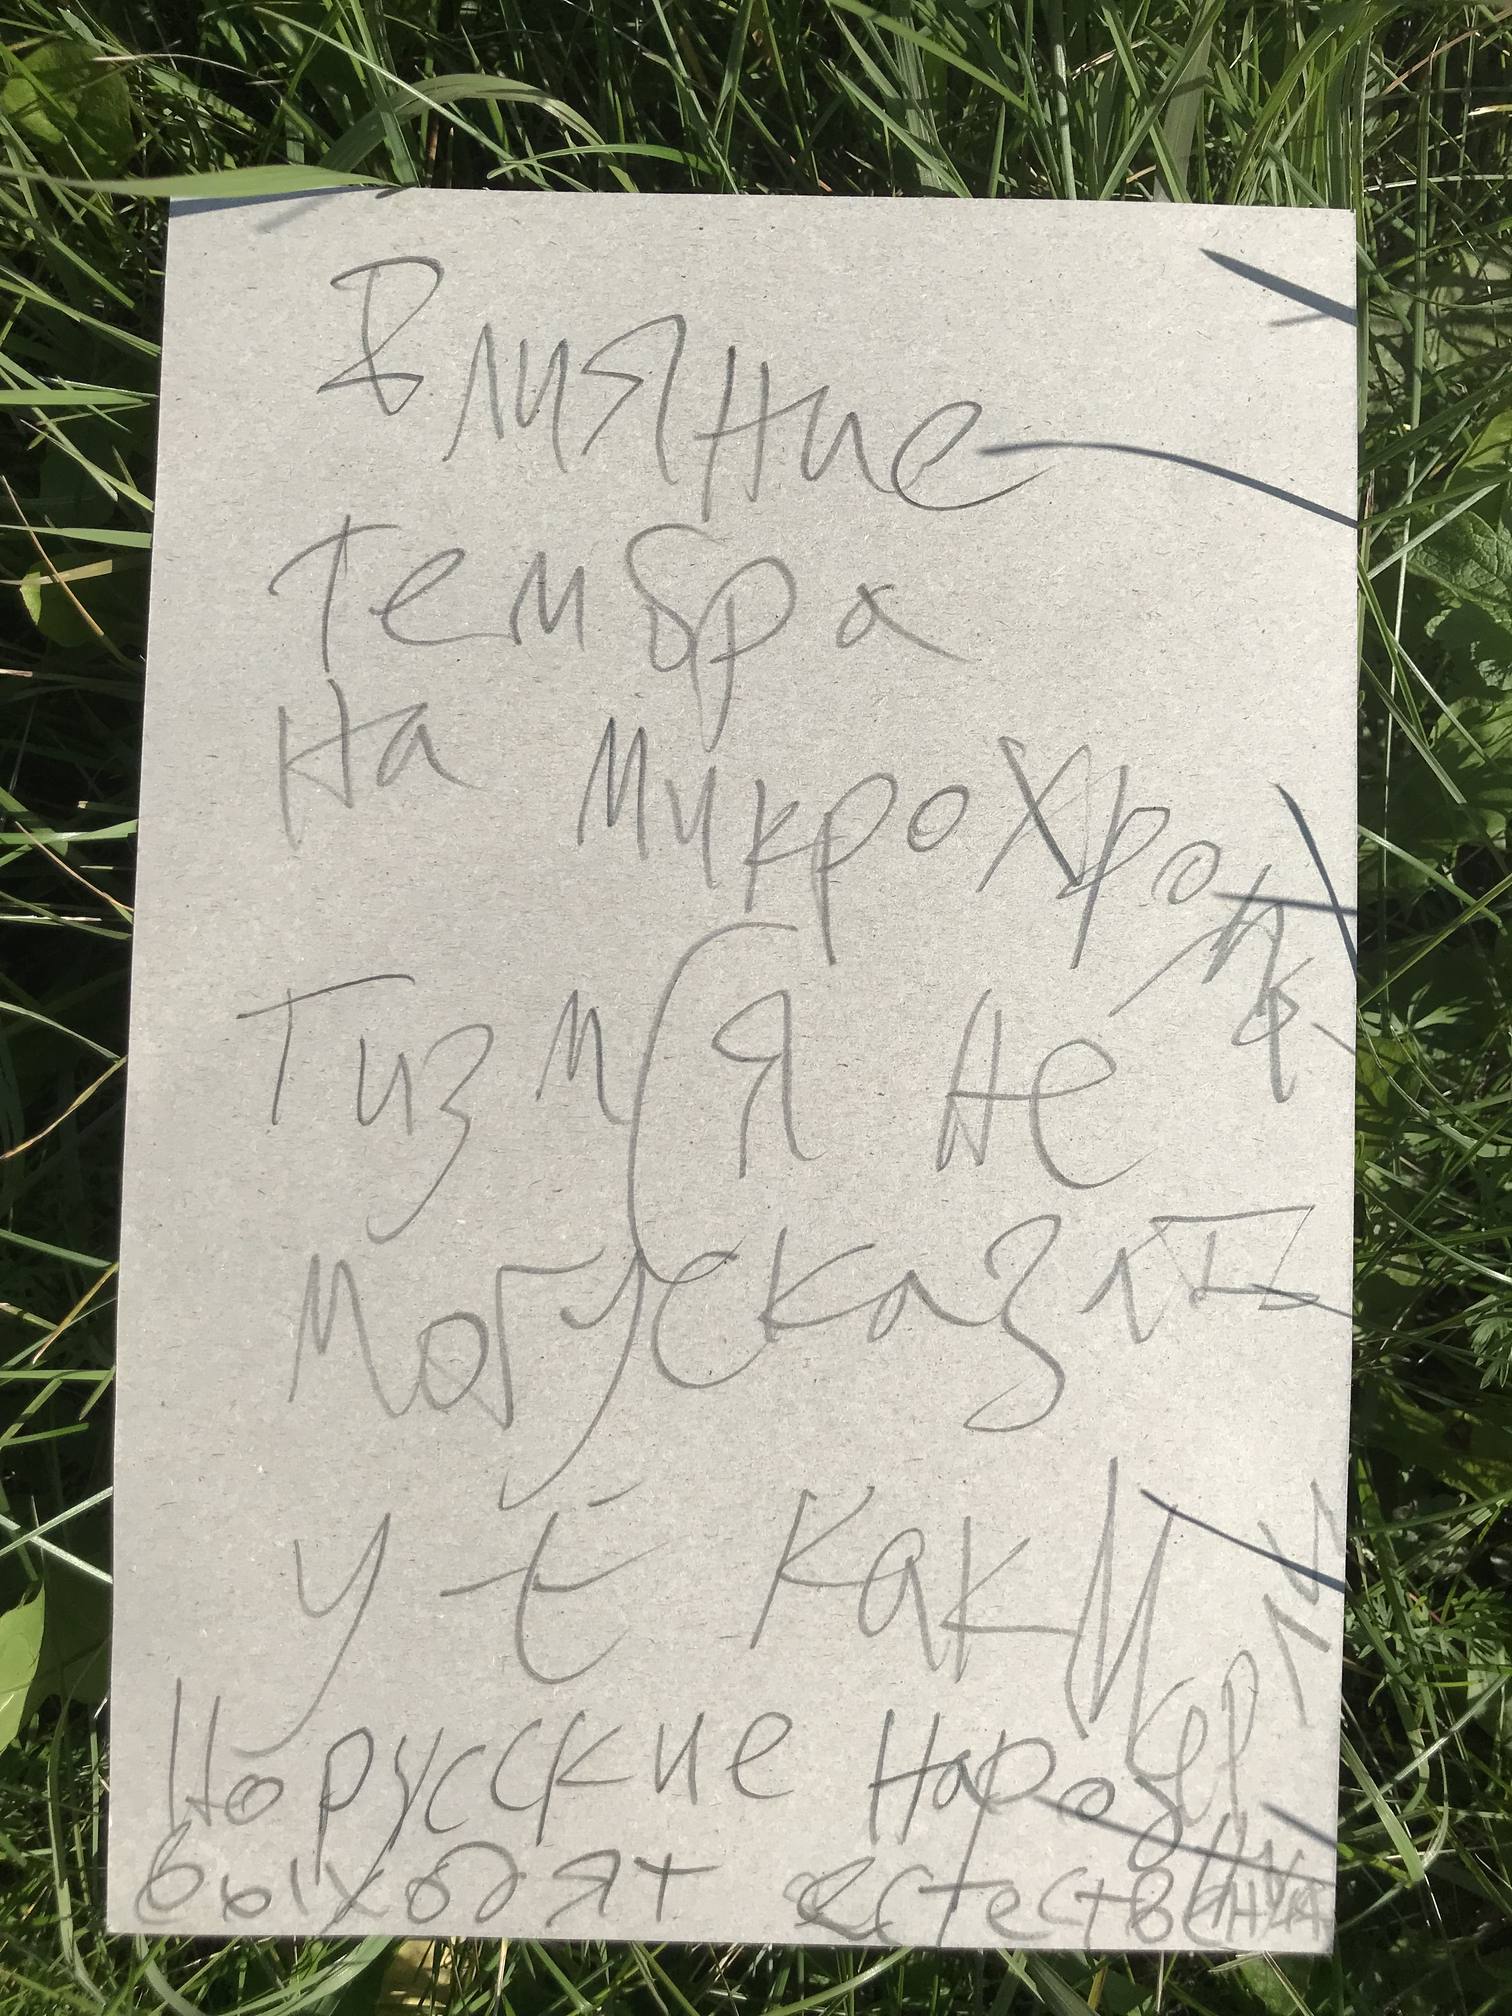 Влияние
тембра
на микрохро
тизм (я не
могу сказать
как
Но русские народ
выходят естествен